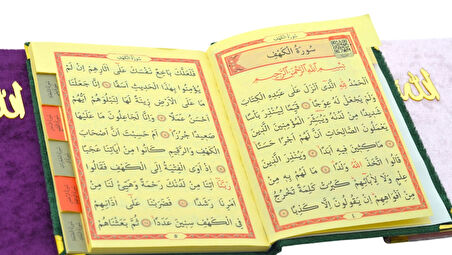 سُورَةُ الْكَهْفِ
بِسْمِ اللّٰهِ الرَّحْمٰنِ الرَّحِيمِ
الْحَمْدُ لِلّٰهِ الَّذِي أَنْزَلَ عَلَى عَبْدِهِ الْكِتَابَ
وَلَمْ يَجْعَلْ لَهُ عِوَجًا قَيِّمًا لِيُنْذِرَ بَأْسًا
شَدِيدًا مِنْ لَدُنْهُ وَيُبَشِّرَ الْمُؤْمِنِينَ الَّذِينَ
يَعْمَلُونَ الصَّالِحَاتِ أَنَّ لَهُمْ أَجْرًا حَسَنًا
مَاكِثِينَ فِيهِ أَبَدًا وَيُنْذِرَ الَّذِينَ
قَالُوا اتَّخَذَ اللّٰهُ وَلَدًا مَا لَهُمْ بِهِ مِنْ
عِلْمٍ وَلَا لِآبَائِهِمْ كَبُرَتْ كَلِمَةً تَخْرُجُ
مِنْ أَفْوَاهِهِمْ إِنْ يَقُولُونَ إِلَّا كَذِبًا
سُورَةُ الْكَهْفِ
فَلَعَلَّكَ بَاخِعٌ نَفْسَكَ عَلَى آثَارِهِمْ إِنْ لَمْ
يُؤْمِنُوا بِهٰذَا الْحَدِيثِ أَسَفًا إِنَّا جَعَلْنَا
مَا عَلَى الْأَرْضِ زِينَةً لَهَا لِنَبْلُوَهُمْ أَيُّهُمْ
أَحْسَنُ عَمَلًا وَإِنَّا لَجَاعِلُونَ مَا عَلَيْهَا
صَعِيدًا جُرُزًا أَمْ حَسِبْتَ أَنَّ أَصْحَابَ
الْكَهْفِ وَالرَّقِيمِ كَانُوا مِنْ آيَاتِنَا عَجَبًا
إِذْ أَوَى الْفِتْيَةُ إِلَى الْكَهْفِ فَقَالُوا
رَبَّنَا آتِنَا مِنْ لَدُنْكَ رَحْمَةً وَهَيِّئْ لَنَا مِنْ
أَمْرِنَا رَشَدًا فَضَرَبْنَا عَلَى آذَانِهِمْ
فِي الْكَهْفِ سِنِينَ عَدَدًا ثُمَّ بَعَثْنَاهُمْ
الله
الله